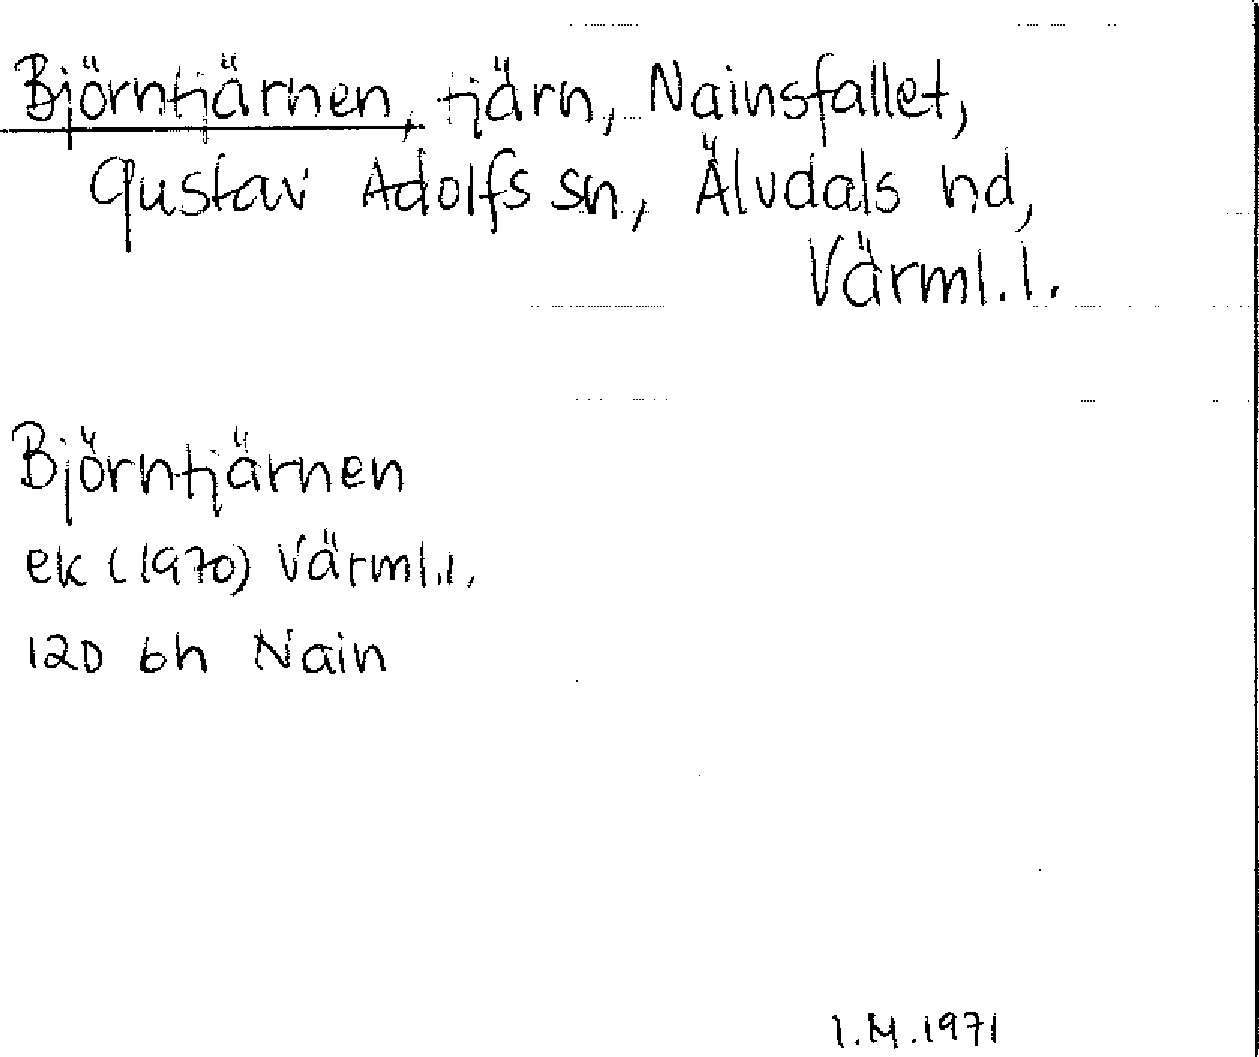 Björntjärnen, tjärn, Nainsfallet,
Gustav Adolfs sn, Älvdals hd,
Värml. l.
Björntjärnen
ek (1970) Värml.l.
12D 6h Nain
I.M.1971